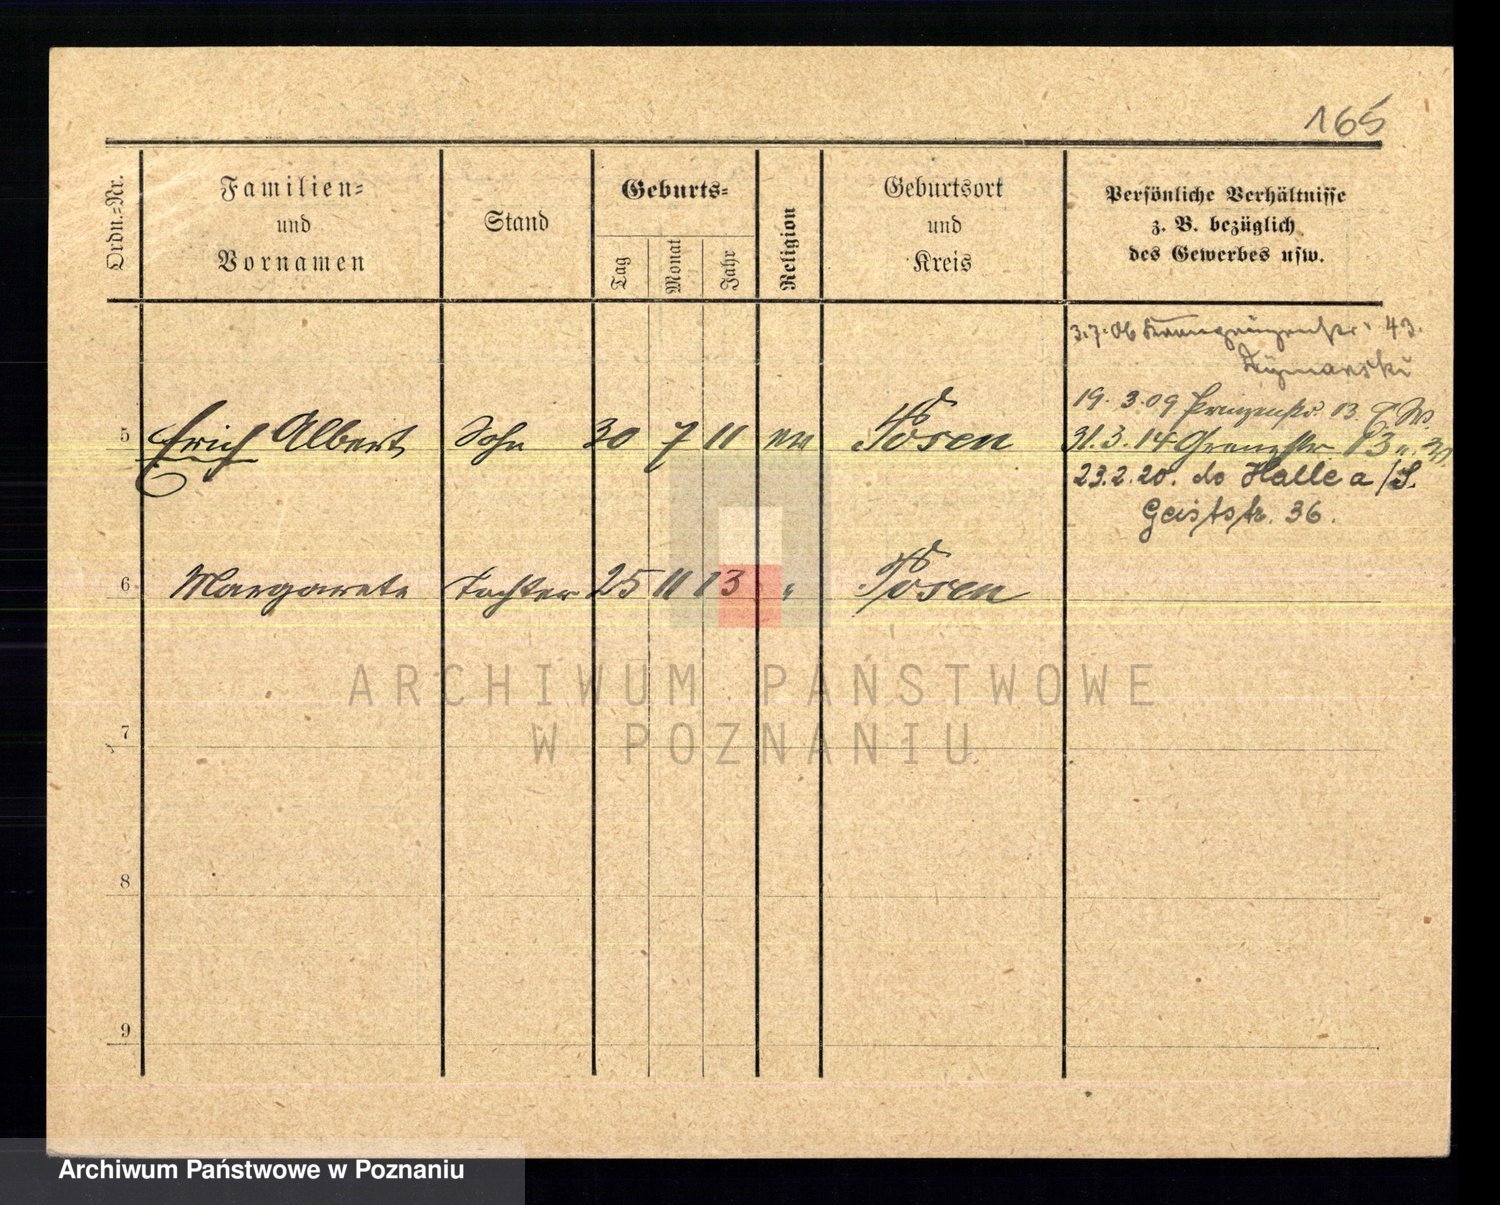 165
Ordn.=Nr.
Familien=
und
Vornamen
Stand
Geburts=
Tag
Monat
Jahr
Religion
Geburtsort
und
Kreis
Persönliche Verhältnisse
z. B. bezüglich
des Gewerbes usw.
3.7.06 43.
19. 3. 09 Prinzenstr. 13.
5 Erich Albert Sohn 30 7 11 ev Posen 31.3.14 13
23.2.20. do Halle a/S.
Geiststr. 36.
6 Margarete Tochter 25 11 13 " Posen
7
8
9
ARCHIWUM PAŃSTWOWE
W POZNANIU
Archiwum Państwowe w Poznaniu